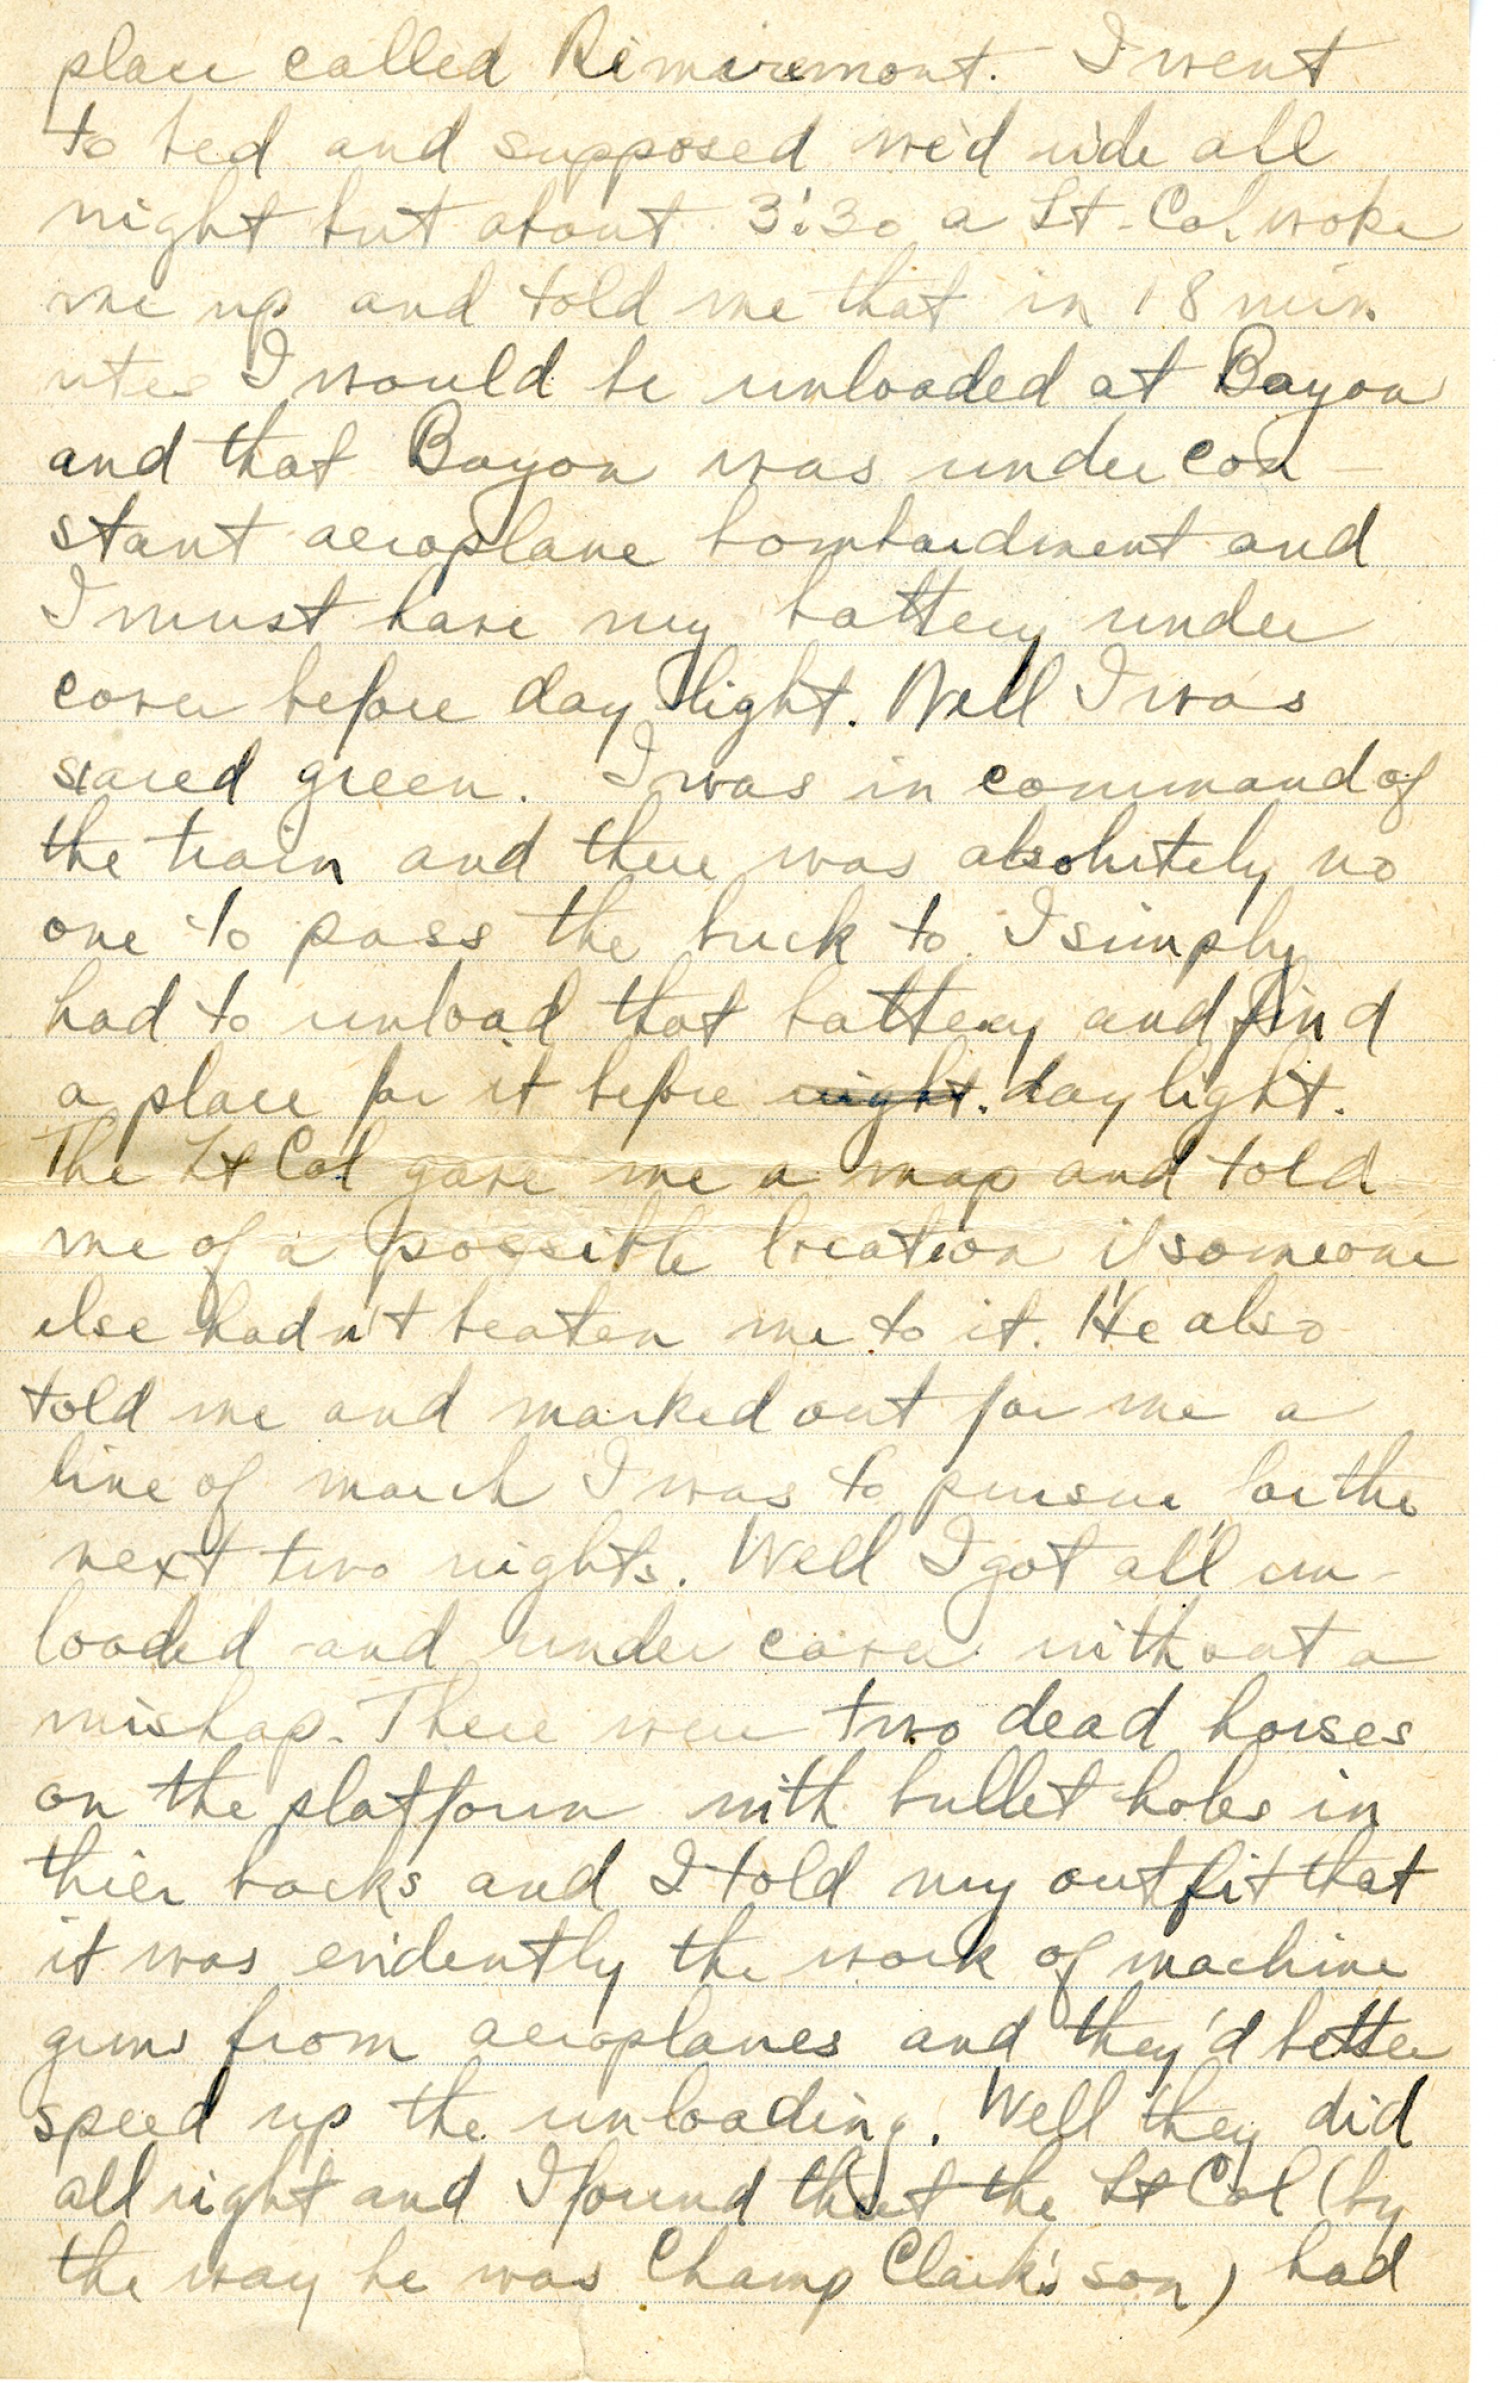 place called Remiremont. I went
to bed and supposed we'd ride all
night but about 3:30 a Lt-Col woke
me up and told me that in 18 min
utes I would be unloaded at Bayon
and that Bayon was under con-
stant aeroplane bombardment and
I must have my battery under
cover before day light. Well I was
scared green. I was in command of
the train and there was absolutely no
one to pass the buck to. I simply
had to unload that battery and find
a place for it before night. daylight.
The Lt Col gave me a map and told
me of a possible location if someone
else hadn't beaten me to it. He also
told me and marked out for me a
line of march I was to pursue for the
next two nights. Well I got all un-
loaded and under cover without a
mishap. There were two dead horses
on the platform with bullet holes in
thier backs and I told my outfit that
it was evidently the work of machine
guns from aeroplanes and they'd better
speed up the unloading. Well they did
all right and I found that the Lt Col (by
the way he was Champ Clark's son) had